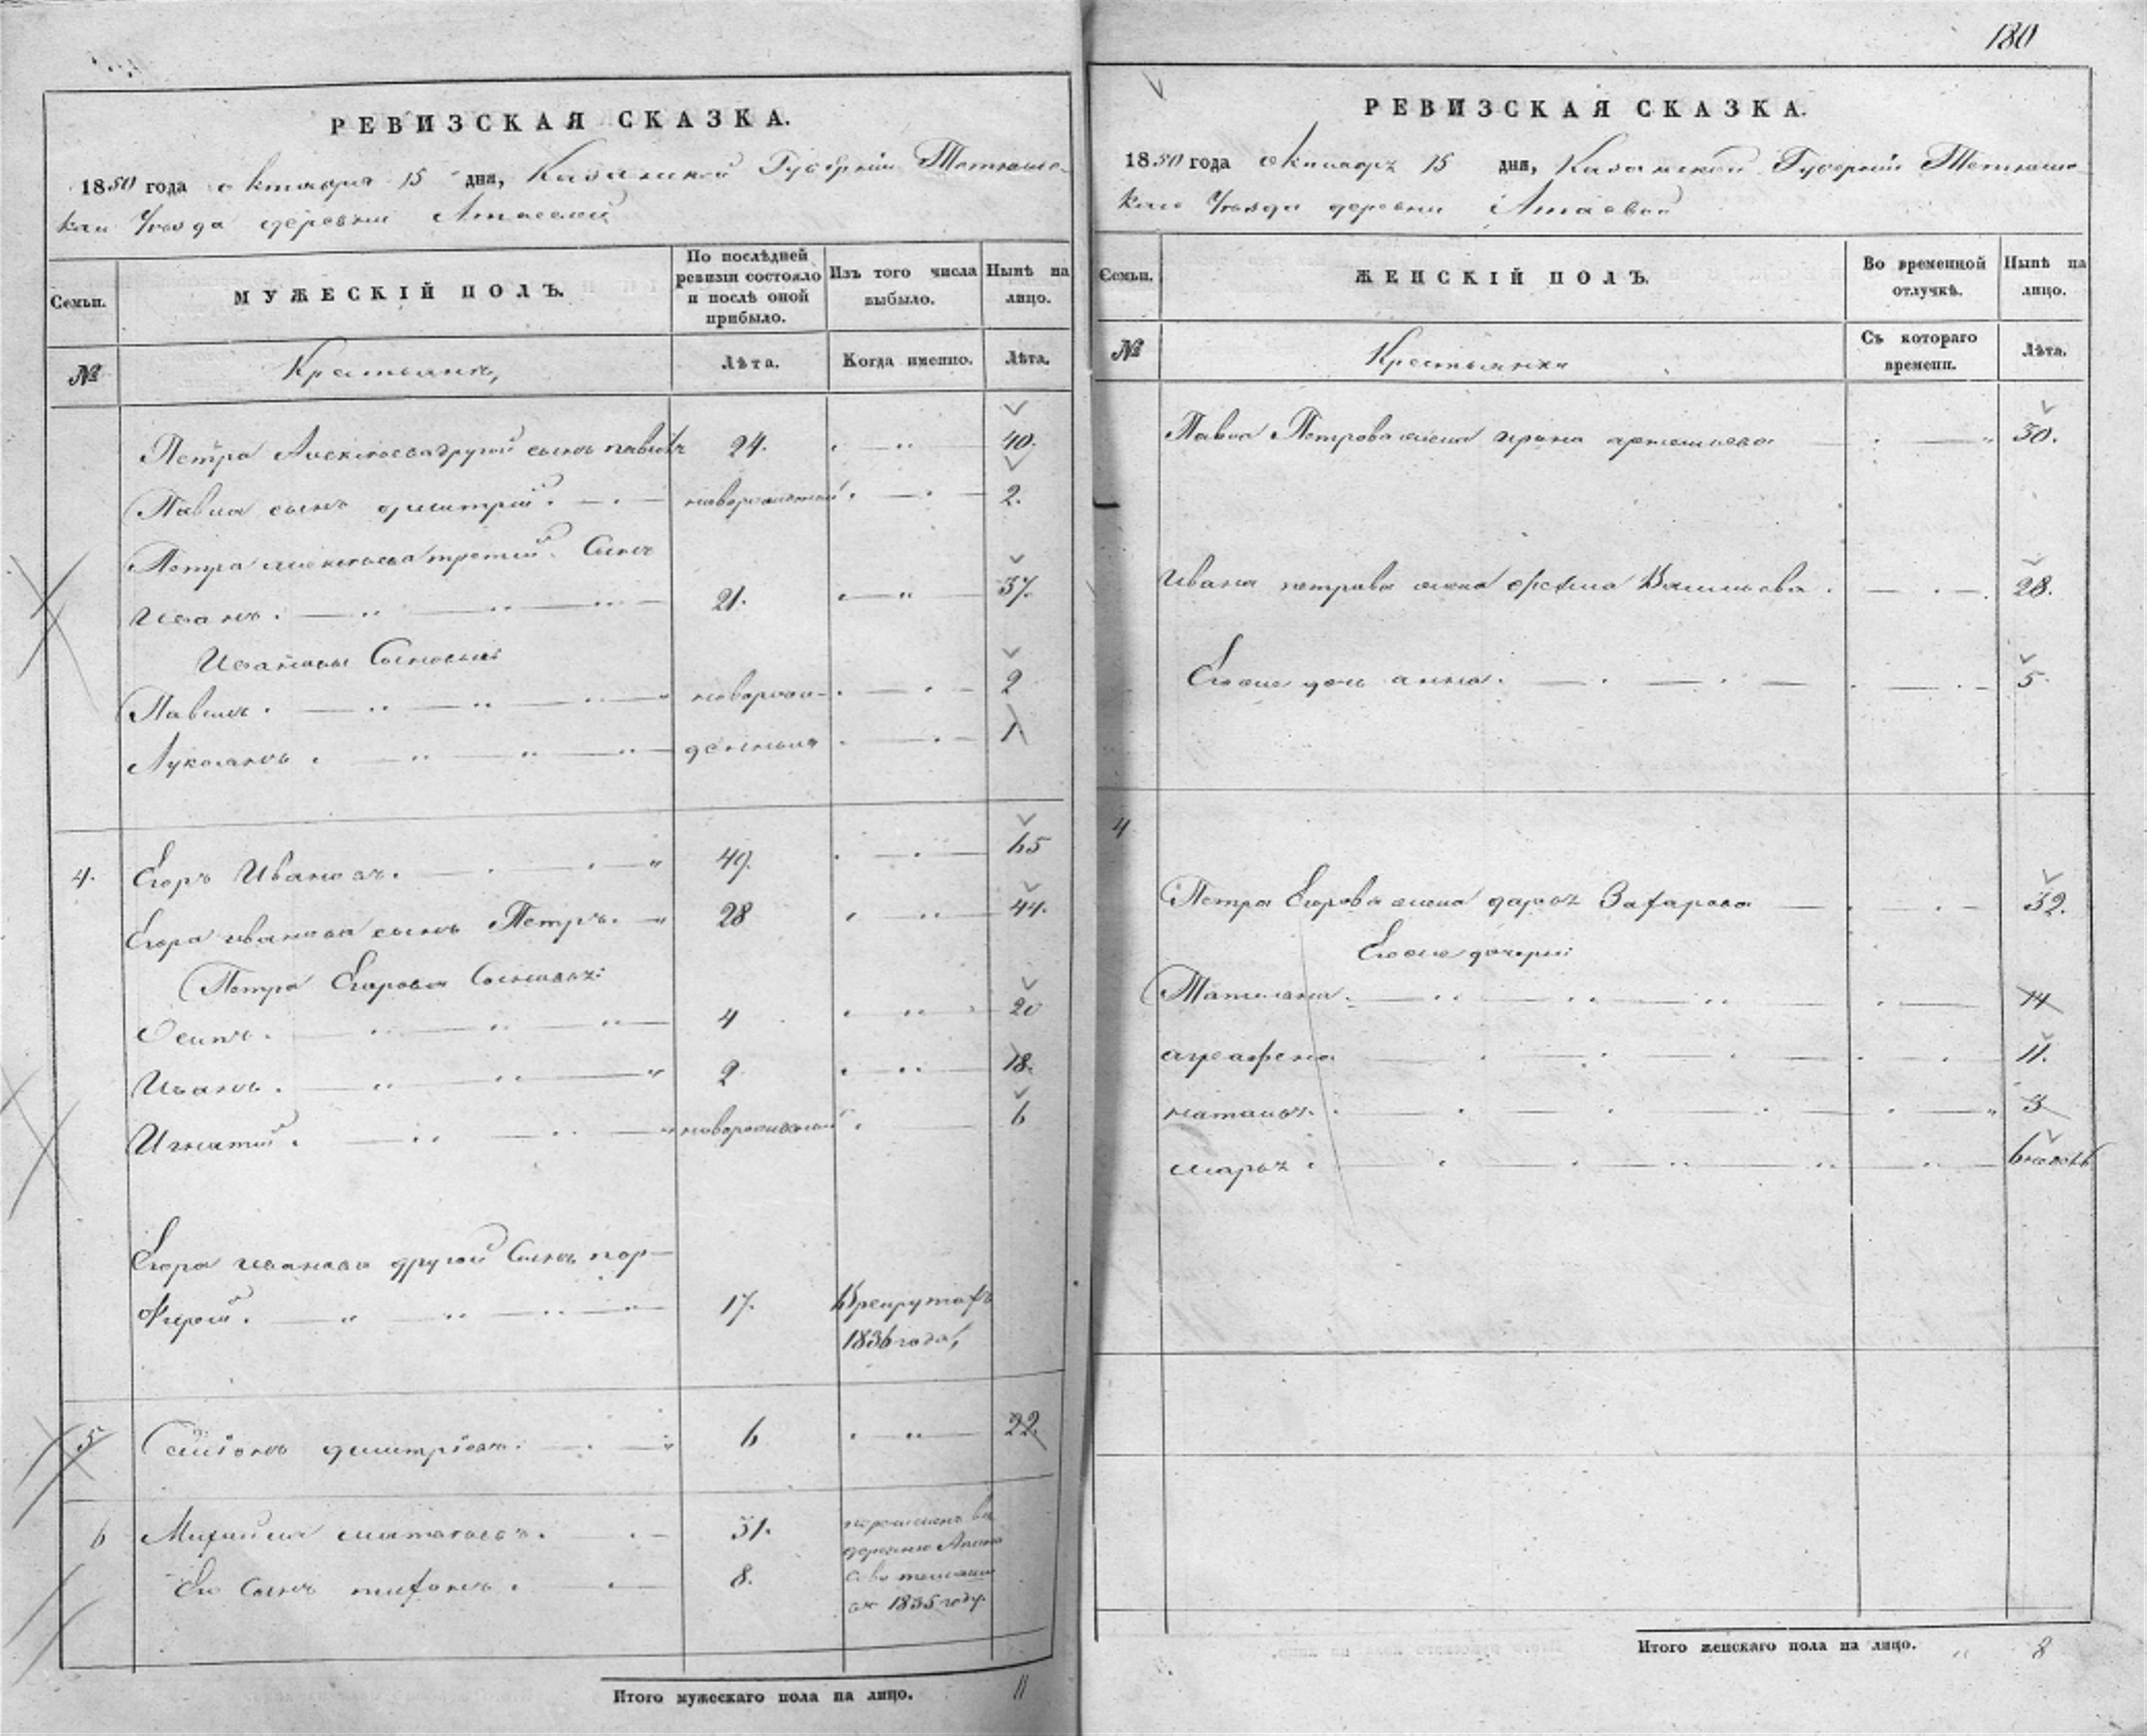 180
РЕВИЗСКАЯ СКАЗКА.
1850 года октября 15 дня, Казанской Губернии Тетюшс-
каго Уезда деревни Атаевой
Семьи.
МУЖЕСКІЙ ПОЛЪ.
По послѣдней ревизіи состояло и послѣ оной прибыло.
Изъ того числа выбыло.
Нынѣ на лицо.
№
Крестьянъ,
Лѣта.
Когда именно.
Лѣта.
Петра Алексѣева другой сынъ павелъ 24. 40.
Павла сынъ дмитрий. новорожденный 2.
Петра алексѣева третий Сынъ
Иванъ. 21. 37.
Ивановы Сыновья
Павелъ. новорож- 2
Лукоянъ. денныя 1
4. Егоръ Ивановъ. 49. 65
Егора иванова сынъ Петръ. 28 44.
Петра Егорова Сыновья:
Осипъ. 4 20
Иванъ. 2 18.
Игнатий. новорожденный 6
Егора иванова другой Сынъ пор-
Фирей. 17. Врекрутахъ
1836 года,
5 Симіонъ димитріевъ. 6 22.
6 Михайла матвѣевъ. 51.
Ево Сынъ тихонъ. 8.
деревню
1835 году.
Итого мужескаго пола на лицо. 11
РЕВИЗСКАЯ СКАЗКА.
1850 года октября 15 дня, Казанской Губернии Тетюшс-
каго Уезда деревни Атаевой
Семьи.
ЖЕНСКІЙ ПОЛЪ.
Во временной отлучкѣ.
Нынѣ на лицо.
№
Крестьянки
Съ котораго времени.
Лѣта.
Павла Петрова жена ирина артемьева 30.
Ивана петрова жена Василева. 28.
Ево же дочь анна. 5.
4
Петра Егорова жена дарья Захарова 32.
Ево же дочерии
Татияна. 14
аграфена 11.
наталья. 3
марья. 6 недель
Итого женскаго пола на лицо. 8